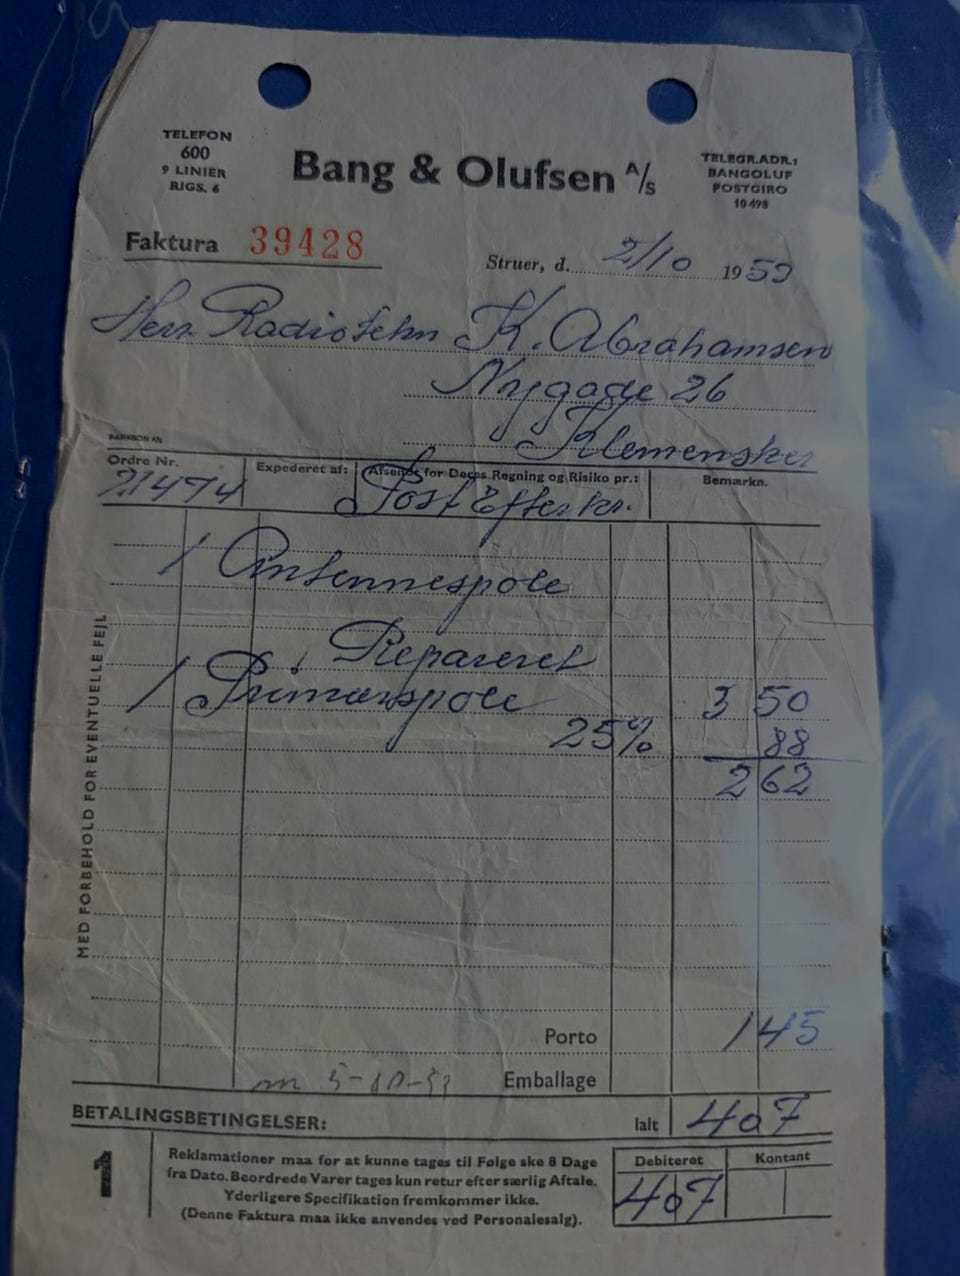 TELEFON
600
9 LINIER
RIGS. 6
Bang & Olufsen A/S
TELEGR.ADR.:
BANGOLUF
POSTGIRO
10 498
Faktura 39428
Struer, d. 2/10 1953
Herr Radiotekn K. Abrahamsen
Nygade 26
Klemensker
PARAGON A/S
Ordre Nr. Expederet af: Afsendt for Deres Regning og Risiko pr.: Bemærkn.
21474 Post Efterkr.
1 Antennespole
Repareret
1 Primærspole 3 50
25% 88
2 62
MED FORBEHOLD FOR EVENTUELLE FEJL
Porto 1 45
5-10-53 Emballage
BETALINGSBETINGELSER: Ialt 4 07
1
Reklamationer maa for at kunne tages til Følge ske 8 Dage
fra Dato. Beordrede Varer tages kun retur efter særlig Aftale.
Yderligere Specifikation fremkommer ikke.
(Denne Faktura maa ikke anvendes ved Personalesalg).
Debiteret Kontant
4 07